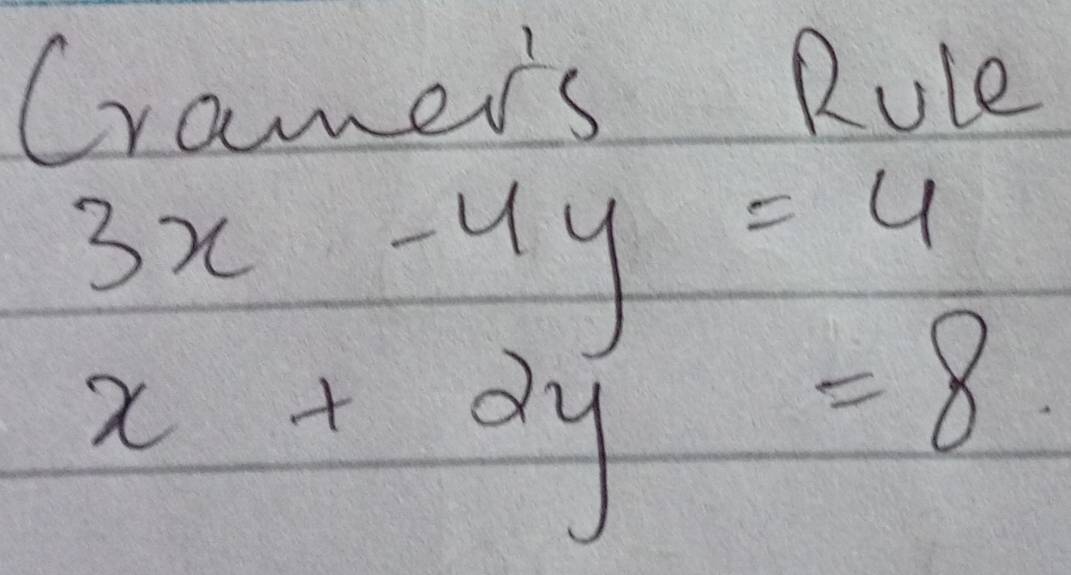 Cramer's Rule
3x - 4y = 4
x + 2y = 8.